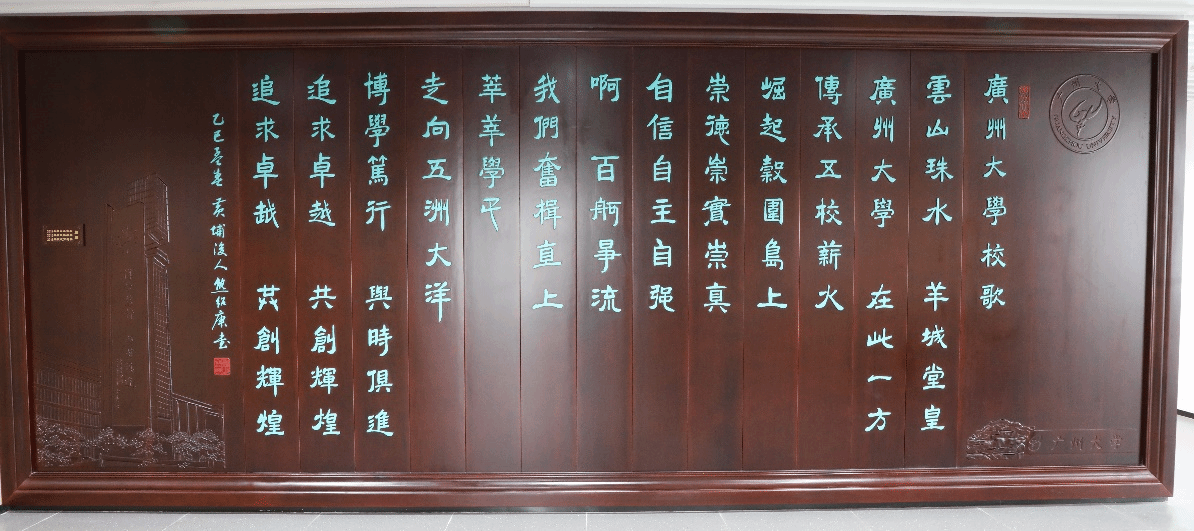 GUANGZHOU UNIVERSITY
廣州大學校歌
雲山珠水 羊城堂皇
廣州大學 在此一方
傳承五校薪火
崛起穀圍島上
崇德崇實崇真
自信自主自强
啊 百舸爭流
我們奮楫直上
莘莘學子
走向五洲大洋
博學篤行 與時俱進
追求卓越 共創輝煌
追求卓越 共創輝煌
乙巳孟春 黃埔後人熊紹康書
广州大学